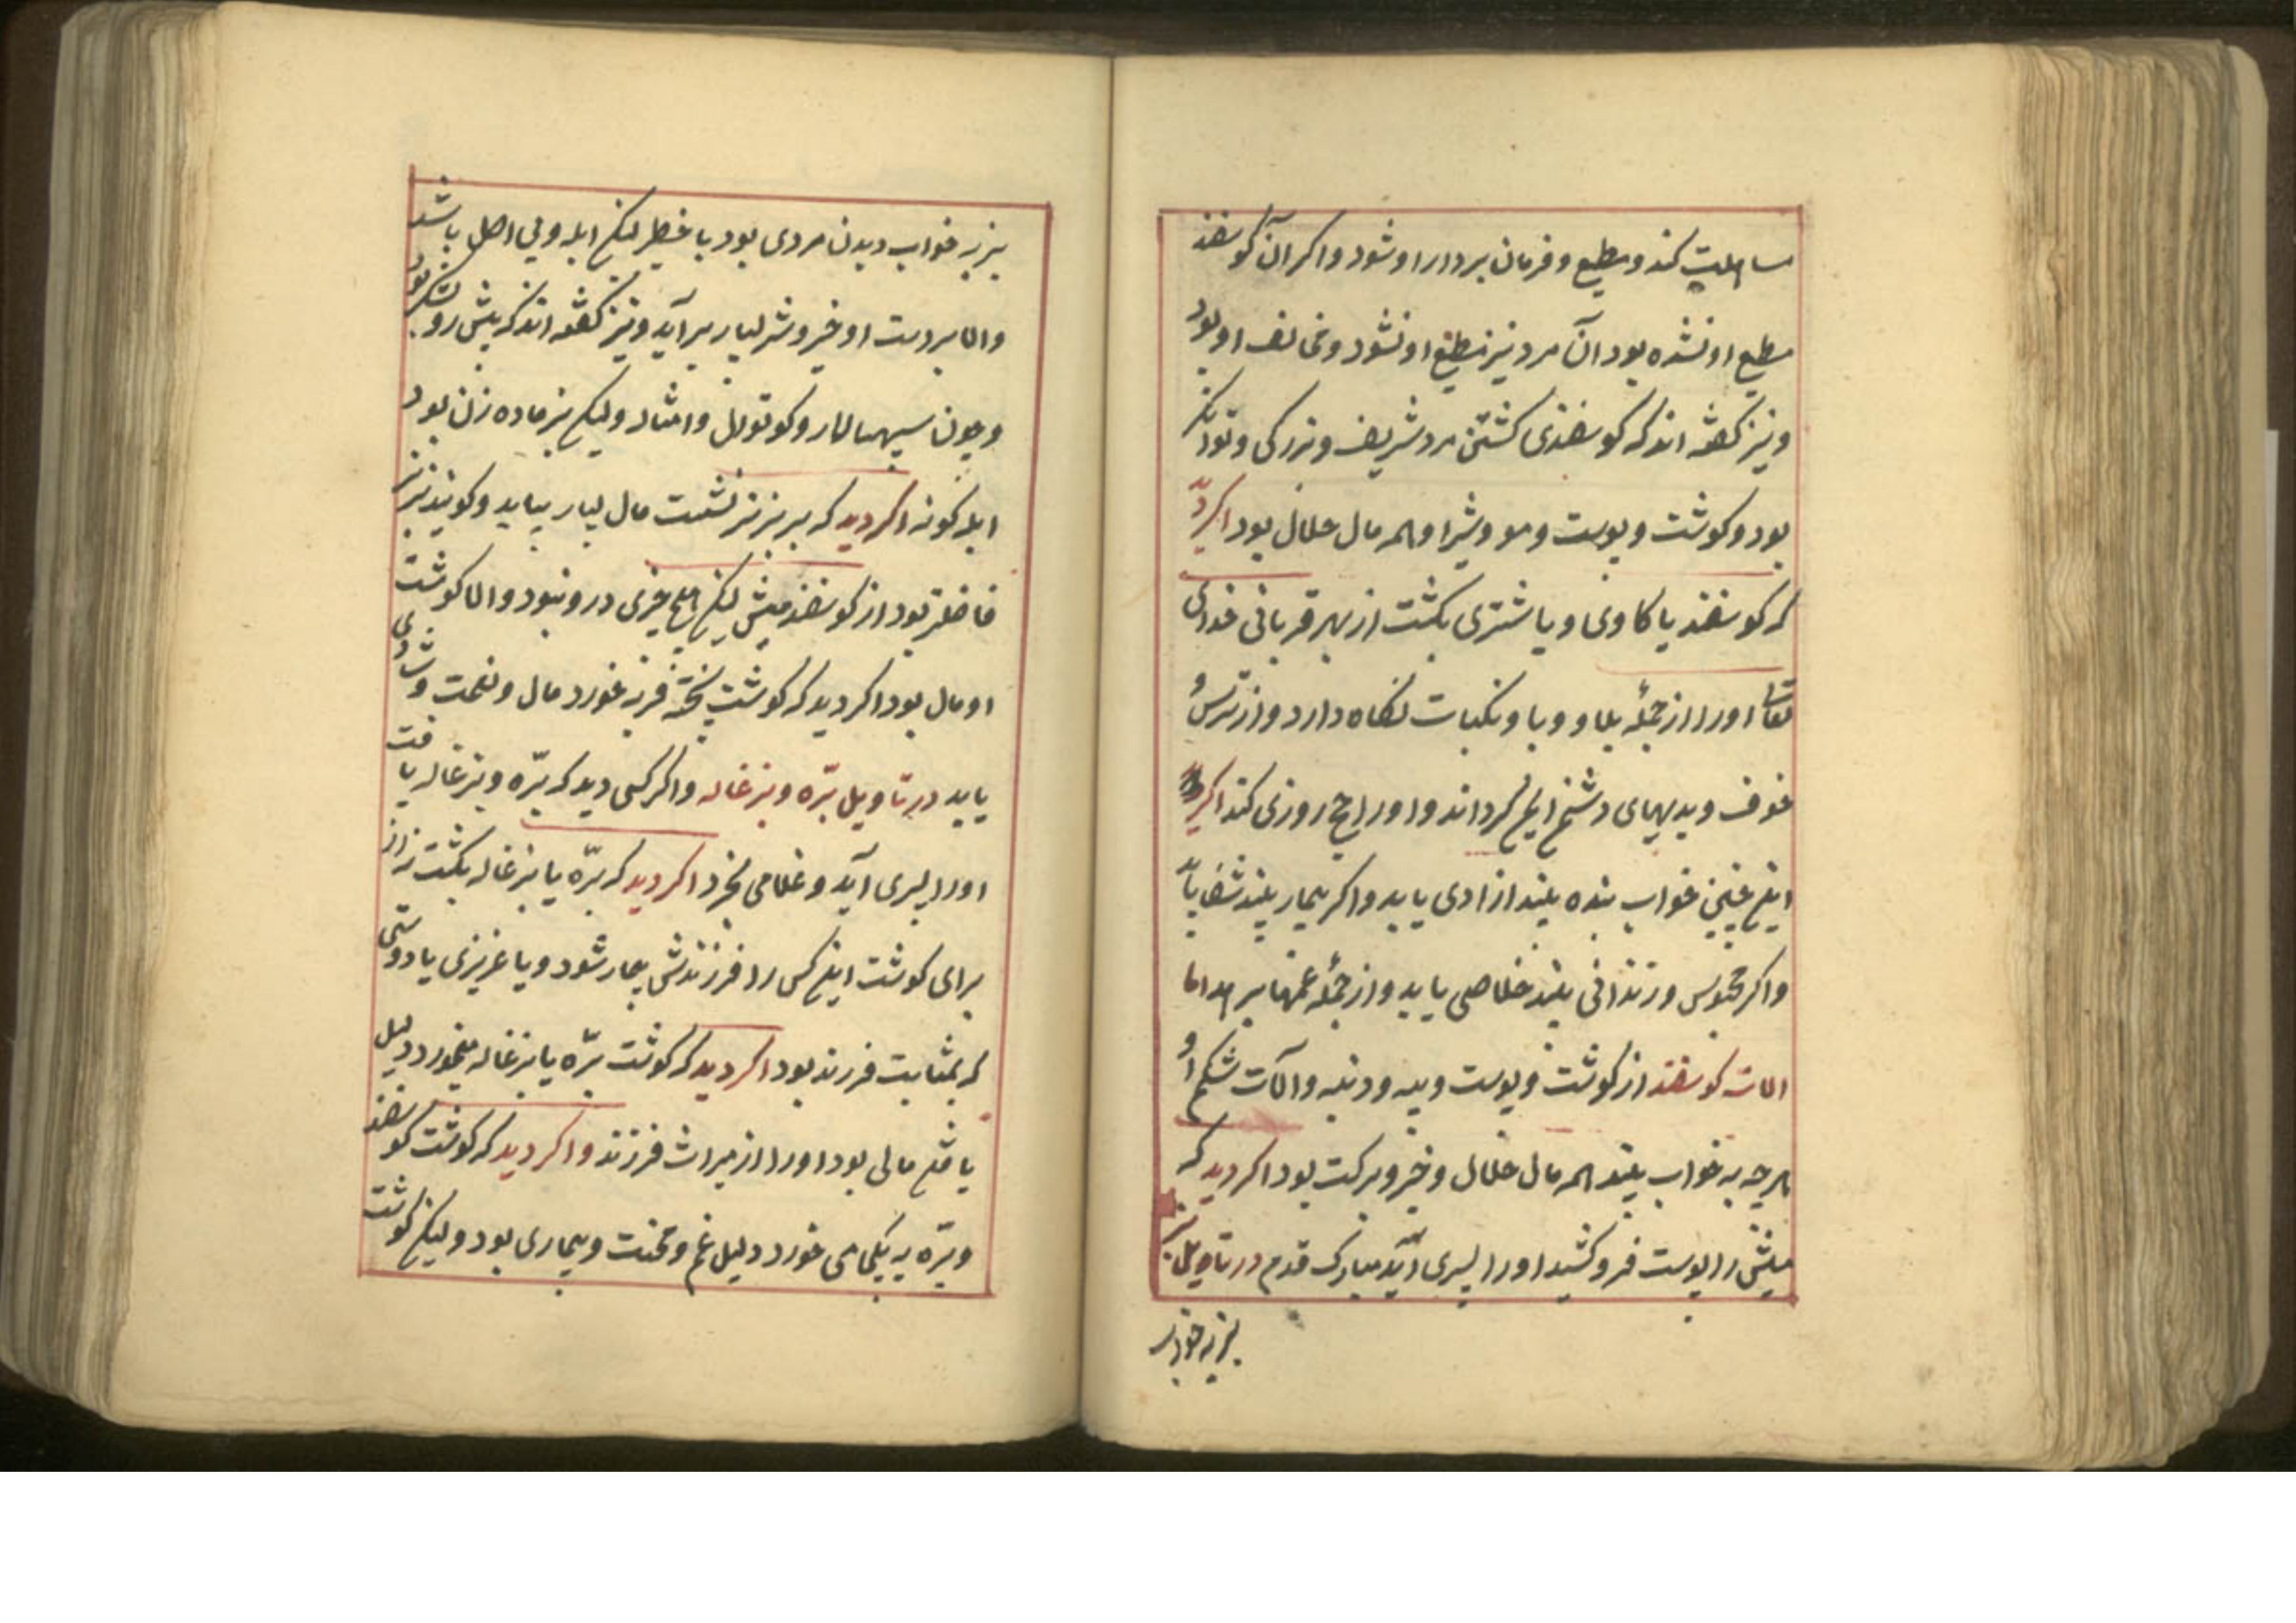 مساهلیت کند و مطیع و فرمان بردار او شود و اکر آن کوسفند
مطیع او نشده بود آن مرد نیز مطیع او نشود و مخالف او بود
و نیز کفته اند که کوسفندی کشتن مرد شریف و بزرکی و توانکر
بود و کوشت و پوست و مو و شیر او همه مال حلال بود اکر دید
که کوسفند یا کاوی و یا شتری بکشت از بهر قربانی خدای
تعالی او را از جملهٔ بلا و وبا و نکبات نکاه دارد و از ترس و
خوف و بدیهای دشمن ایمن کرداند و او را حج روزی کند اکر
این چنین خواب بنده بیند ازادی یابد و اکر بیمار بیند شفا یابد
و اکر محبوس و زندانی بیند خلاصی یابد و از جملهٔ غمها برهد اما
الات کوسفند از کوشت و پوست و پیه و دنبه و آلات شکم او
هرچه به خواب بیند همه مال حلال و خیر و برکت بود اکر دید که
میش را پوست فرو کشید او را پسری آید مبارک قدم در تاویل بز
بز به خواب
بز به خواب دیدن مردی بود با خطر لیکن ابله و بی اصل باشد
و اما بر دست او خیر و شر بسیار بر آید و نیز کفته اند که پیش رو لشکر بود
و چون سپهسالار و کوتوال و امثاله ولیکن بز ماده زن بود
ابله کونه اکر دید که بر بز نر نشست مال بسیار بیابد و کویند بز نر
فاضلتر بود از کوسفند میش لیکن هیچ خیری درو نبود و اما کوشت
او مال بود اکر دید که کوشت پخته فربه خورد مال و نعمت و شادی
یابد در تاویل برّه و بزغاله و اکر کسی دید که برّه و بزغاله یافت
او را پسری آید و غلامی بخرد اکر دید که برّه یا بزغاله بکشت نه از
برای کوشت این کس را فرزندش بیمار شود و یا عزیزی یا دوستی
که بمثابت فرزند بود اکر دید که کوشت برّه یا بزغاله میخورد دلیل
یافتن مالی بود او را از میراث فرزند و اکر دید که کوشت کوسفند
و برّه به یکجا می خورد دلیل غم و محنت و بیماری بود ولیکن کوشت